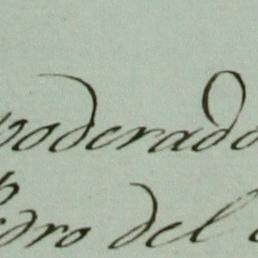 poderado
dro del